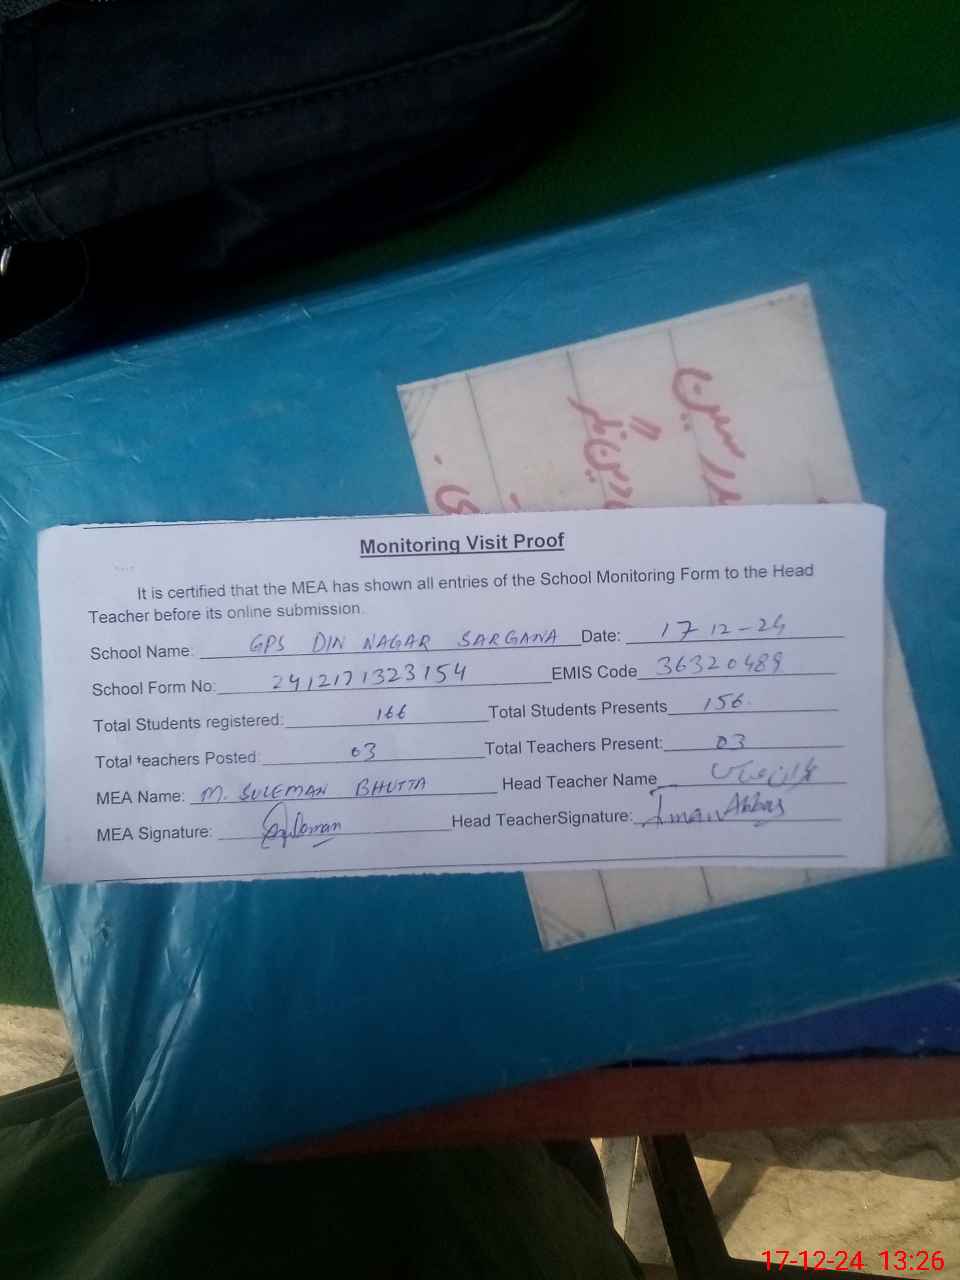 مدرسین
دین نگر
Monitoring Visit Proof
It is certified that the MEA has shown all entries of the School Monitoring Form to the Head
Teacher before its online submission.
School Name: GPS DIN NAGAR SARGANA Date: 17-12-24
School Form No: 2412171323154 EMIS Code 36320489
Total Students registered: 166 Total Students Presents 156
Total teachers Posted: 03 Total Teachers Present: 03
MEA Name: M. SULEMAN BHUTTA Head Teacher Name
MEA Signature: Head TeacherSignature: Abbas
17-12-24 13:26